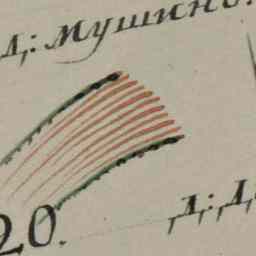 д: Мушино.
20.
д: Д